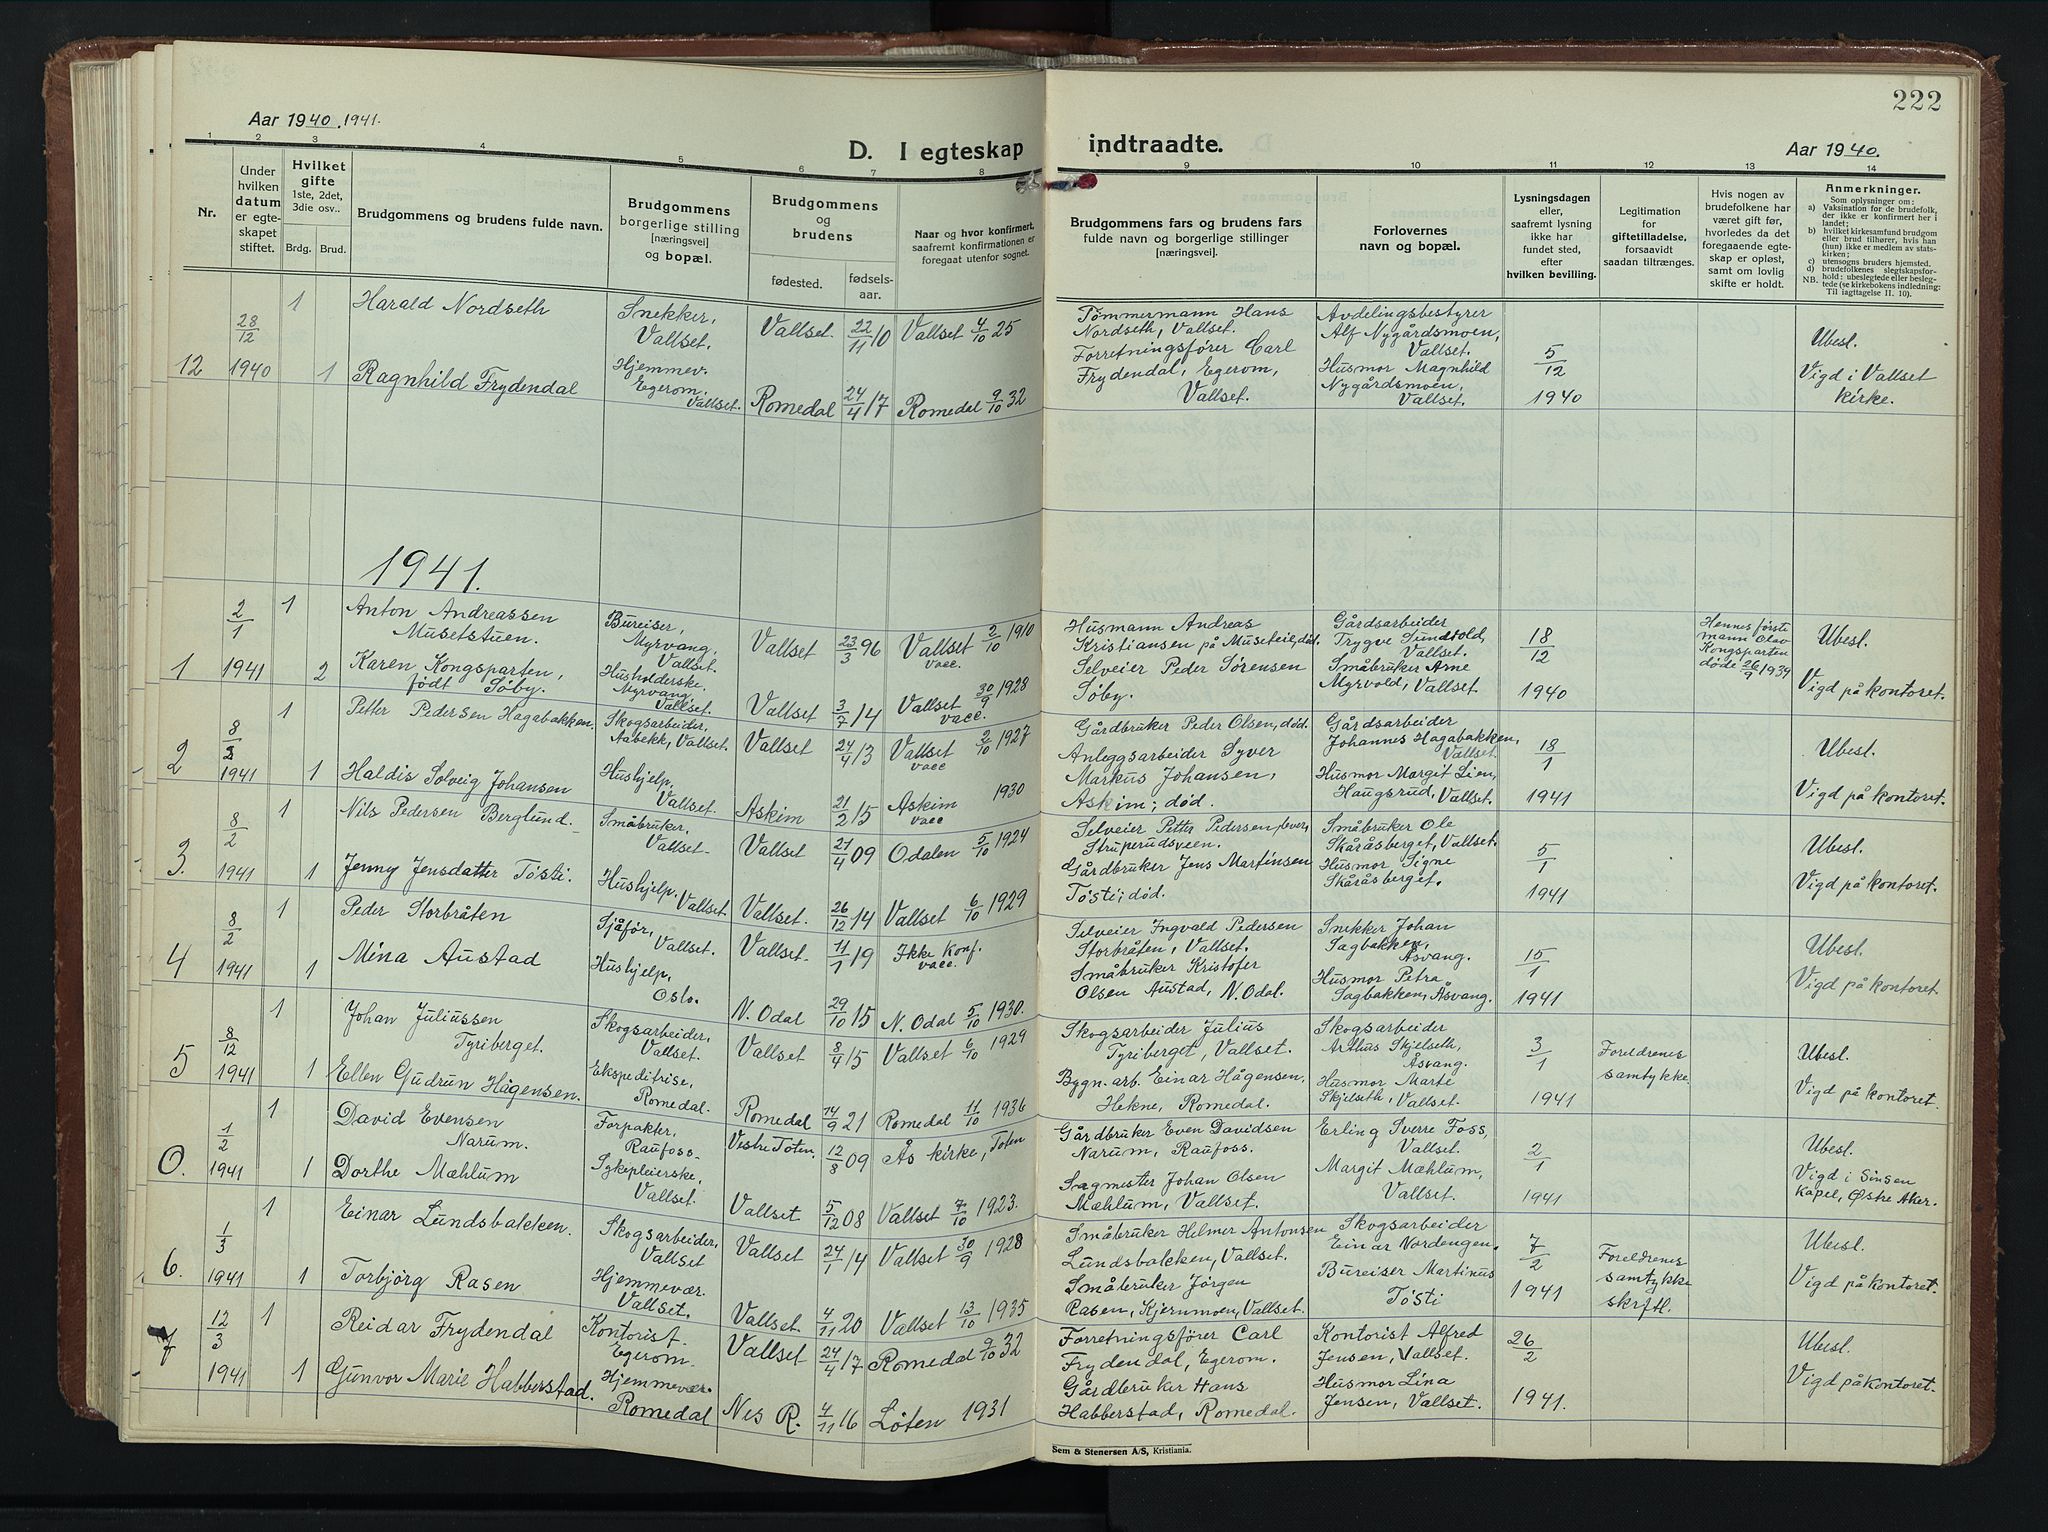 222
Aar 1940. 1941.
D. I egteskap indtraadte.
Aar 1940.
1 2 3 4 5 6 7 8 9 10 11 12 13 14
Nr.
Under hvilken datum er egteskapet stiftet.
Hvilket gifte 1ste, 2det, 3die osv..
Brdg. Brud.
Brudgommens og brudens fulde navn.
Brudgommens borgerlige stilling [næringsvei] og bopæl.
Brudgommens og brudens
fødested. fødselsaar.
Naar og hvor konfirmert, saafremt konfirmationen er foregaat utenfor sognet.
Brudgommens fars og brudens fars fulde navn og borgerlige stillinger [næringsvei].
Forlovernes navn og bopæl.
Lysningsdagen eller, saafremt lysning ikke har fundet sted, efter hvilken bevilling.
Legitimation for giftetilladelse, forsaavidt saadan tiltrænges.
Hvis nogen av brudefolkene har været gift før, hvorledes da det foregaaende egteskap er opløst, samt om lovlig skifte er holdt.
Anmerkninger.
Som oplysninger om:
a) Vaksination for de brudefolk, der ikke er konfirmert her i landet;
b) hvilket kirkesamfund brudgom eller brud tilhører, hvis han (hun) ikke er medlem av statskirken;
c) utensogns bruders hjemsted.
d) brudefolkenes slegtskapsforhold: ubeslegtede eller beslegtede (se kirkebokens indledning: Til iagttagelse II. 10).
NB.
12 28/12 1940 1 Harald Nordseth Snekker, Vallset. Vallset. 22/11 10 Vallset 4/10 25 Tømmermann Hans Nordseth, Vallset. Avdelingsbestyrer Alf Nygårdsmoen, Vallset. 5/12 1940 Ubesl. Vigd i Vallset kirke.
1 Ragnhild Frydendal Hjemmev. Egerom. Vallset. Romedal 24/4 17 Romedal 9/10 32 Forretningsfører Carl Frydendal, Egerom, Vallset. Husmor Magnhild Nygårdsmoen, Vallset.
1941.
1 2/1 1941 1 Anton Andreassen Musetstuen. Bureiser, Myrvang, Vallset. Vallset 23/3 96 Vallset 2/10 1910 vacc. Husmann Andreas Kristiansen på Museteie, død. Gårdsarbeider Trygve Sundvold, Vallset. 18/12 1940 Hennes første mann Olav Kongsparten døde 26/9 1934 Ubesl. Vigd på kontoret.
2 Karen Kongsparten, født Søby. Husholderske. Myrvang, Vallset. Vallset 3/7 14 Vallset 30/9 1928 vacc. Selveier Peder Sørensen Søby. Småbruker Arne Myrvold, Vallset.
2 8/2 1941 1 Petter Pedersen Hagabakken. Skogsarbeider, Aabekk, Vallset. Vallset 24/4 13 Vallset 2/10 1927 vacc Gårdbruker Peder Olsen, død. Gårdsarbeider Johannes Hagabakken, Vallset 18/1 1941 Ubesl. Vigd på kontoret.
1 Haldis Solveig Johansen Hushjelp, Vallset. Askim 21/2 15 Askim 1930 vacc Anleggsarbeider Syver Markus Johansen, Askim; død. Husmor Margit Lien, Haugsrud, Vallset.
3. 8/2 1941 1 Nils Pedersen Berglund. Småbruker, Vallset. Vallset 21/4 09 Odalen 5/10 1924 Selveier Petter Pedersen, lever, Struperudsveen. Småbruker Ole Skåråsberget, Vallset. 5/1 1941 Ubesl. Vigd på kontoret.
1 Jenny Jensdatter Tøsti. Hushjelp, Vallset Vallset. 26/12 14 Vallset 6/10 1929 Gårdbruker Jens Martinsen Tøsti; død. Husmor Signe Skåråsberget.
4 8/2 1941 1 Peder Storbråten Sjåfør, Vallset. Vallset. 11/1 19 Ikke konf. vacc. Selveier Ingvald Pedersen Storbråten, Vallset. Snekker Johan Sagbakken, Åsvang. 15/1 1941 Ubesl. Vigd på kontoret.
1 Mina Austad Hushjelp, Oslo. N. Odal 29/10 15 N. Odal 5/10 1930. Småbruker Kristofer Olsen Austad, N. Odal. Husmor Petra Sagbakken, Åsvang.
5 8/12 1941 1 Johan Juliussen Tyriberget. Skogsarbeider, Vallset. Vallset 8/4 15 Vallset 6/10 1929 Skogsarbeider Julius Tyriberget, Vallset. Skogsarbeider Arthus Skjelseth, Åsvang. 3/1 1941 Foreldrenes samtykke Ubesl. Vigd på kontoret.
1 Ellen Gudrun Hågensen. Ekspeditrise, Romedal. Romedal 14/9 21 Romedal 11/10 1936 Bygn. arb. Einar Hågensen, Hekne, Romedal. Husmor Marte Skjelseth, Vallset.
0. 1/2 1941 1 David Evensen Narum. Forpakter, Raufoss. Vestre Toten. 12/8 09 Ås kirke, Toten Gårdbruker Even Davidsen Narum, Raufoss. Erling Sverre Foss, Vallset. 2/1 1941 Ubesl. Vigd i Sinsen Kapel, Østre Aker.
1 Dorthe Mæhlum Sykepleierske, Vallset. Vallset 5/12 08 Vallset 7/10 1923. Sagmester Johan Olsen Mæhlum, Vallset. Margit Mæhlum, Vallset.
6. 1/3 1941 1 Einar Lundsbakken. Skogsarbeider, Vallset Vallset 24/1 14 Vallset 30/9 1928 Småbruker Helmer Antonsen Lundsbakken, Vallset. Skogsarbeider Einar Nordengen. 7/2 1941 Foreldrenes samtykke skrftl. Ubesl. Vigd på kontoret.
1 Torbjörg Rasen Hjemmevær. Vallset. Vallset. 4/11 20 Vallset 13/10 1935 Småbruker Jørgen Rasen, Kjernmoen, Vallset. Bureiser Martinus Tøsti
7 12/3 1941 1 Reidar Frydendal Kontorist. Egerom. Vallset 24/4 17 Romedal 9/10 32 Forretningsfører Carl Frydendal, Egerom. Kontorist Alfred Jensen, Vallset. 26/2 1941. Ubesl. Vigd på kontoret.
1 Gunvor Marie Habberstad. Hjemmevær. Romedal Nes R. 4/11 16 Løten 1931 Gårdbruker Hans Habberstad, Romedal. Husmor Lina Jensen, Vallset.
Sem & Stenersen A/S, Kristiania.